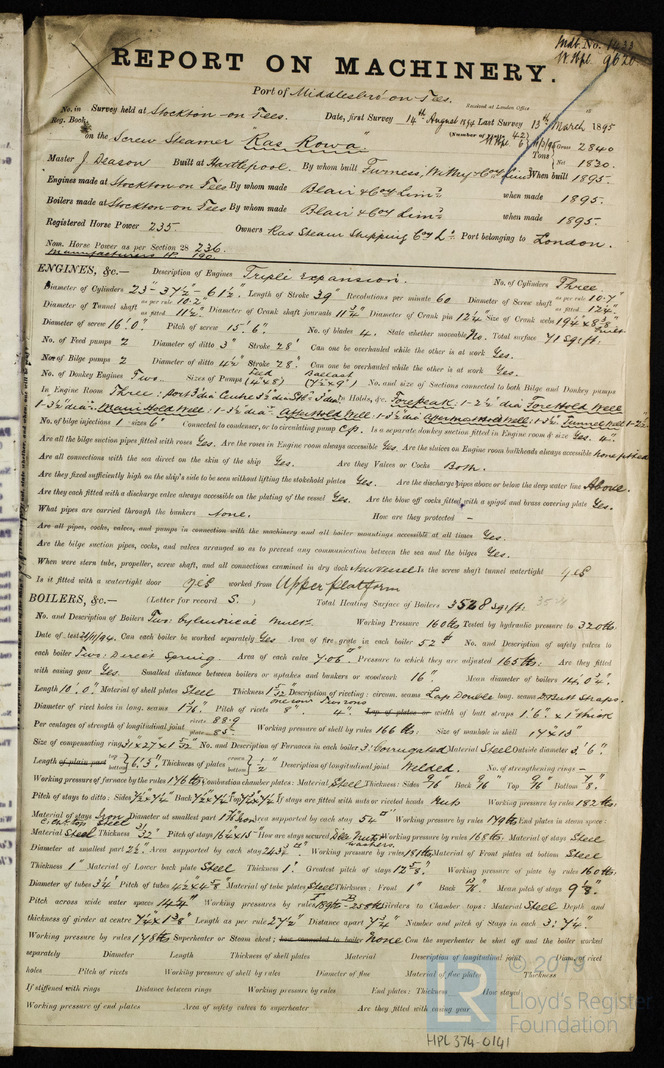 Mdb. No. 1433
W. Hpl. 9620
REPORT ON MACHINERY.
Port of Middlesbro' on Tees.
Received at London Office
No. in Reg. Book. Survey held at Stockton-on Tees. Date, first Survey 14th August 1894 Last Survey 13th March 1895
on the Screw Steamer "Ras Kowa" Tons Gross 2840
Net 1830.
Master J. Deason Built at Hartlepool. By whom built Furness, Withy & Coy Lim? When built 1895.
Engines made at Stockton on Tees By whom made Blair & Coy Lim? when made 1895.
Boilers made at Stockton on Tees By whom made Blair & Coy Lim? when made 1895.
Registered Horse Power 235. Owners Ras Steam Shipping Coy Ld. Port belonging to London.
Nom. Horse Power as per Section 28 236.
Manufacturers HP 190
ENGINES, &c.— Description of Engines Tripli Expansion. No. of Cylinders Three
Diameter of Cylinders 23 - 37½ - 61½" Length of Stroke 39" Revolutions per minute 60 Diameter of Screw shaft as per rule 10.7" as fitted 12¼"
Diameter of Tunnel shaft as per rule 10.2" as fitted 11½" Diameter of Crank shaft journals 11¾" Diameter of Crank pin 12¼" Size of Crank webs
Diameter of screw 16'.0" Pitch of screw 15'.6" No. of blades 4. State whether moveable No. Total surface 71 sq.ft.
No. of Feed pumps 2 Diameter of ditto 3" Stroke 28" Can one be overhauled while the other is at work Yes.
No. of Bilge pumps 2 Diameter of ditto 4½" Stroke 28" Can one be overhauled while the other is at work Yes.
No. of Donkey Engines Two. Sizes of Pumps Feed (4"x8") Ballast (7½"x9") No. and size of Suctions connected to both Bilge and Donkey pumps
In Engine Room Three: Port 3" dia Centre 3½" dia In Holds, &c. Forepeak: 1-2½" dia Fore Hold Well
1-3½" dia: Main Hold Well: 1-3½" dia: After Hold Well: 1-3½" dia Tunnel Well 1-2½"
No. of bilge injections 1 sizes 6" Connected to condenser, or to circulating pump C.P. Is a separate donkey suction fitted in Engine room & size Yes. 4".
Are all the bilge suction pipes fitted with roses Yes. Are the roses in Engine room always accessible Yes. Are the sluices on Engine room bulkheads always accessible None fitted
Are all connections with the sea direct on the skin of the ship Yes. Are they Valves or Cocks Both.
Are they fixed sufficiently high on the ship's side to be seen without lifting the stokehold plates Yes. Are the discharge pipes above or below the deep water line Above.
Are they each fitted with a discharge valve always accessible on the plating of the vessel Yes. Are the blow off cocks fitted with a spigot and brass covering plate Yes.
What pipes are carried through the bunkers None. How are they protected -
Are all pipes, cocks, valves, and pumps in connection with the machinery and all boiler mountings accessible at all times Yes.
Are the bilge suction pipes, cocks, and valves arranged so as to prevent any communication between the sea and the bilges Yes.
When were stern tube, propeller, screw shaft, and all connections examined in dry dock New Vessel Is the screw shaft tunnel watertight Yes
Is it fitted with a watertight door Yes worked from Upper platform
BOILERS, &c.— (Letter for record S. ) Total Heating Surface of Boilers 3528 sq.ft.
No. and Description of Boilers Two: Cylindrical Mult? Working Pressure 160 lbs Tested by hydraulic pressure to 320 lbs.
Date of test Can each boiler be worked separately Yes Area of fire grate in each boiler 52 No. and Description of safety valves to
each boiler Two: Direct Spring. Area of each valve 7.06" Pressure to which they are adjusted 165 lbs. Are they fitted
with easing gear Yes. Smallest distance between boilers or uptakes and bunkers or woodwork 16". Mean diameter of boilers 14'.0¼".
Length 10'.0". Material of shell plates Steel Thickness 1 5/32" Description of riveting: circum. seams Lap Double long. seams D. Butt Straps.
Diameter of rivet holes in long. seams Pitch of rivets 8" 4" Lap of plates or width of butt straps 1'.6". x 1" thick
Per centages of strength of longitudinal joint rivets 88.9 plate 85. Working pressure of shell by rules 166 lbs. Size of manhole in shell 17 x 13"
Size of compensating ring No. and Description of Furnaces in each boiler 3: Corrugated Material Steel Outside diameter 3'.6".
Length of plain part top bottom 6'.3" Thickness of plates crown bottom ½" Description of longitudinal joint Welded. No. of strengthening rings -
Working pressure of furnace by the rules 176 lbs. Combustion chamber plates: Material Steel Thickness: Sides 9/16" Back 9/16" Top 9/16" Bottom 7/8".
Pitch of stays to ditto: Sides 7½"x7¼" Back 7½"x7½" Top If stays are fitted with nuts or riveted heads Nuts Working pressure by rules 182 lbs.
Material of stays Iron Diameter at smallest part Area supported by each stay 54" Working pressure by rules 179 lbs. End plates in steam space:
Material Steel Thickness 31/32" Pitch of stays 16¼ x 15" How are stays secured Dble Nuts & washers. Working pressure by rules 168 lbs. Material of stays Steel
Diameter at smallest part 2½". Area supported by each stay 243¾" Working pressure by rules 181 lbs Material of Front plates at bottom Steel
Thickness 1" Material of Lower back plate Steel Thickness 1". Greatest pitch of stays 12⅝" Working pressure of plate by rules 160 lbs.
Diameter of tubes 3¼". Pitch of tubes 4½ x 4⅝" Material of tube plates Steel Thickness: Front 1" Back 13/16". Mean pitch of stays 9⅛".
Pitch across wide water spaces 14¼" Working pressures by rules Girders to Chamber tops: Material Steel Depth and
thickness of girder at centre 7¼ x 1⅜" Length as per rule 27½" Distance apart 7¾" Number and pitch of Stays in each 3: 7¼"
Working pressure by rules 178 lbs Superheater or Steam chest; how connected to boiler None Can the superheater be shut off and the boiler worked
separately Diameter Length Thickness of shell plates Material Description of longitudinal joint Diam. of rivet
holes Pitch of rivets Working pressure of shell by rules Diameter of flue Material of flue plates Thickness
If stiffened with rings Distance between rings Working pressure by rules End plates: Thickness How stayed
Working pressure of end plates Area of safety valves to superheater Are they fitted with easing gear
© 2019
LR
Lloyd's Register
Foundation
HPL374-0141